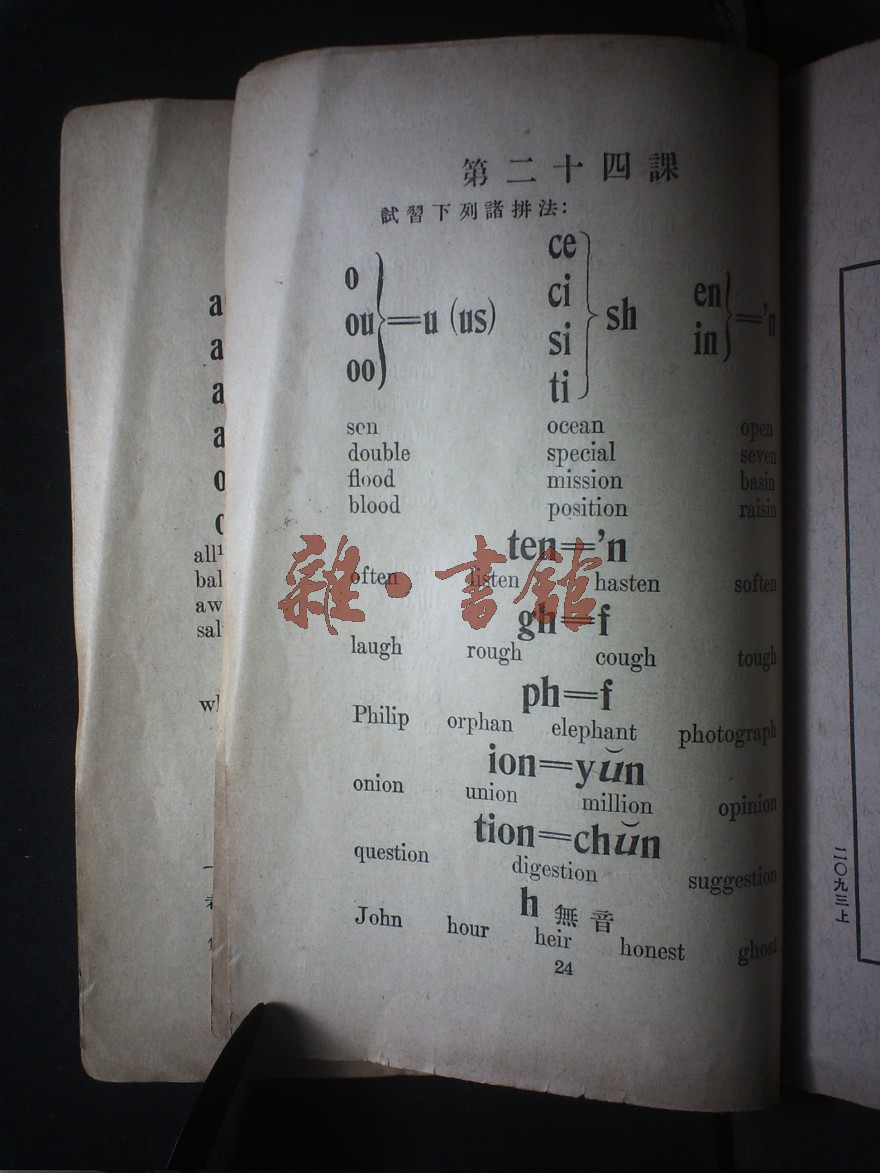 第二十四課
試習下列諸拼法：
o
ou
oo
=u (us)
ce
ci
si
ti
sh
en
in
='n
son ocean open
double special seven
flood mission basin
blood position raisin
ten='n
often listen hasten soften
gh=f
laugh rough cough tough
ph=f
Philip orphan elephant photograph
ion=yŭn
onion union million opinion
tion=chŭn
question digestion suggestion
h 無音
John hour heir honest ghost
24
雜·書館
二〇九三上
a
a
a
a
o